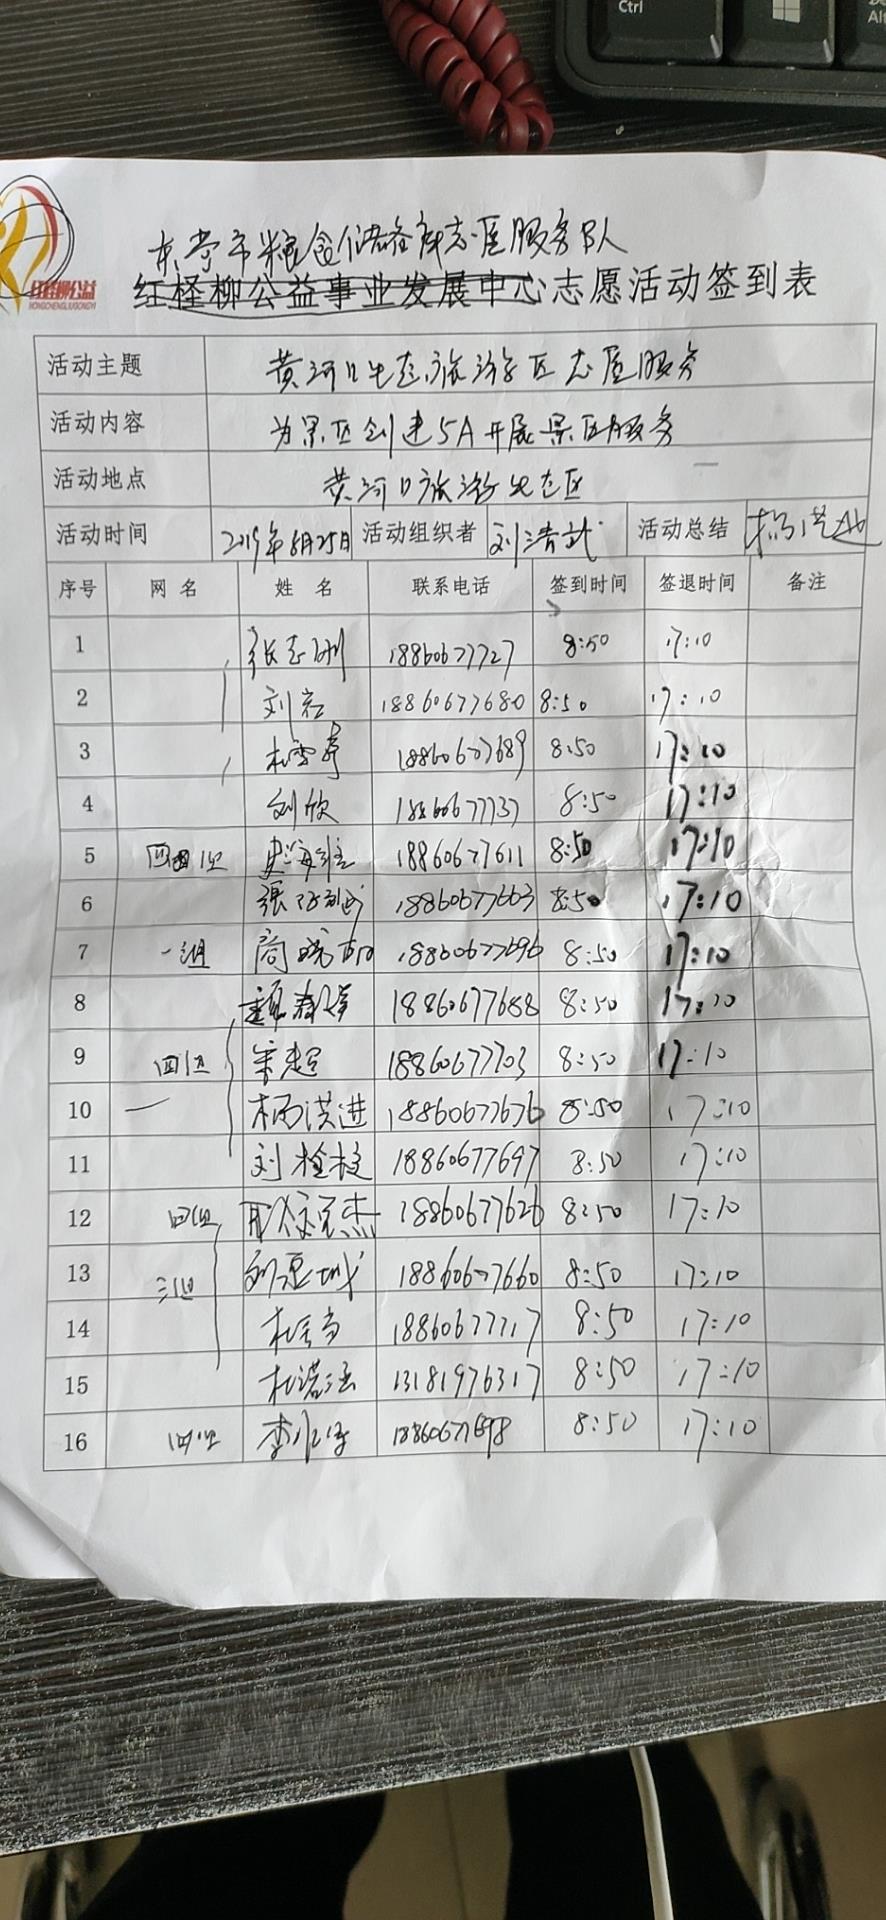 Ctrl
Alt
红柽柳公益
HONGCHENGLIUGONGYI
东营市粮食储备库志愿服务队
红柽柳公益事业发展中心志愿活动签到表
活动主题 黄河口生态旅游区志愿服务
活动内容 为景区创建5A开展景区服务
活动地点 黄河口旅游生态区
活动时间 2019年8月25日 活动组织者 刘浩武 活动总结 杨洪进
序号 网名 姓名 联系电话 签到时间 签退时间 备注
1 张志刚 18860677727 8:50 17:10
2 刘岩 18860677680 8:50 17:10
3 杜雪芹 18860677689 8:50 17:10
4 刘欣 18860677737 8:50 17:10
5 四组 史海 18860677611 8:50 17:10
6 张 18860677663 8:50 17:10
7 一组 商晓 18860677696 8:50 17:10
8 18860677688 8:50 17:10
9 四组 宋超 18860677703 8:50 17:10
10 杨洪进 18860677676 8:50 17:10
11 刘检校 18860677697 8:50 17:10
12 四组 18860677626 8:50 17:10
13 三组 刘 18860677660 8:50 17:10
14 杜 18860677717 8:50 17:10
15 杜诺涵 13181976317 8:50 17:10
16 四组 李 18860677698 8:50 17:10